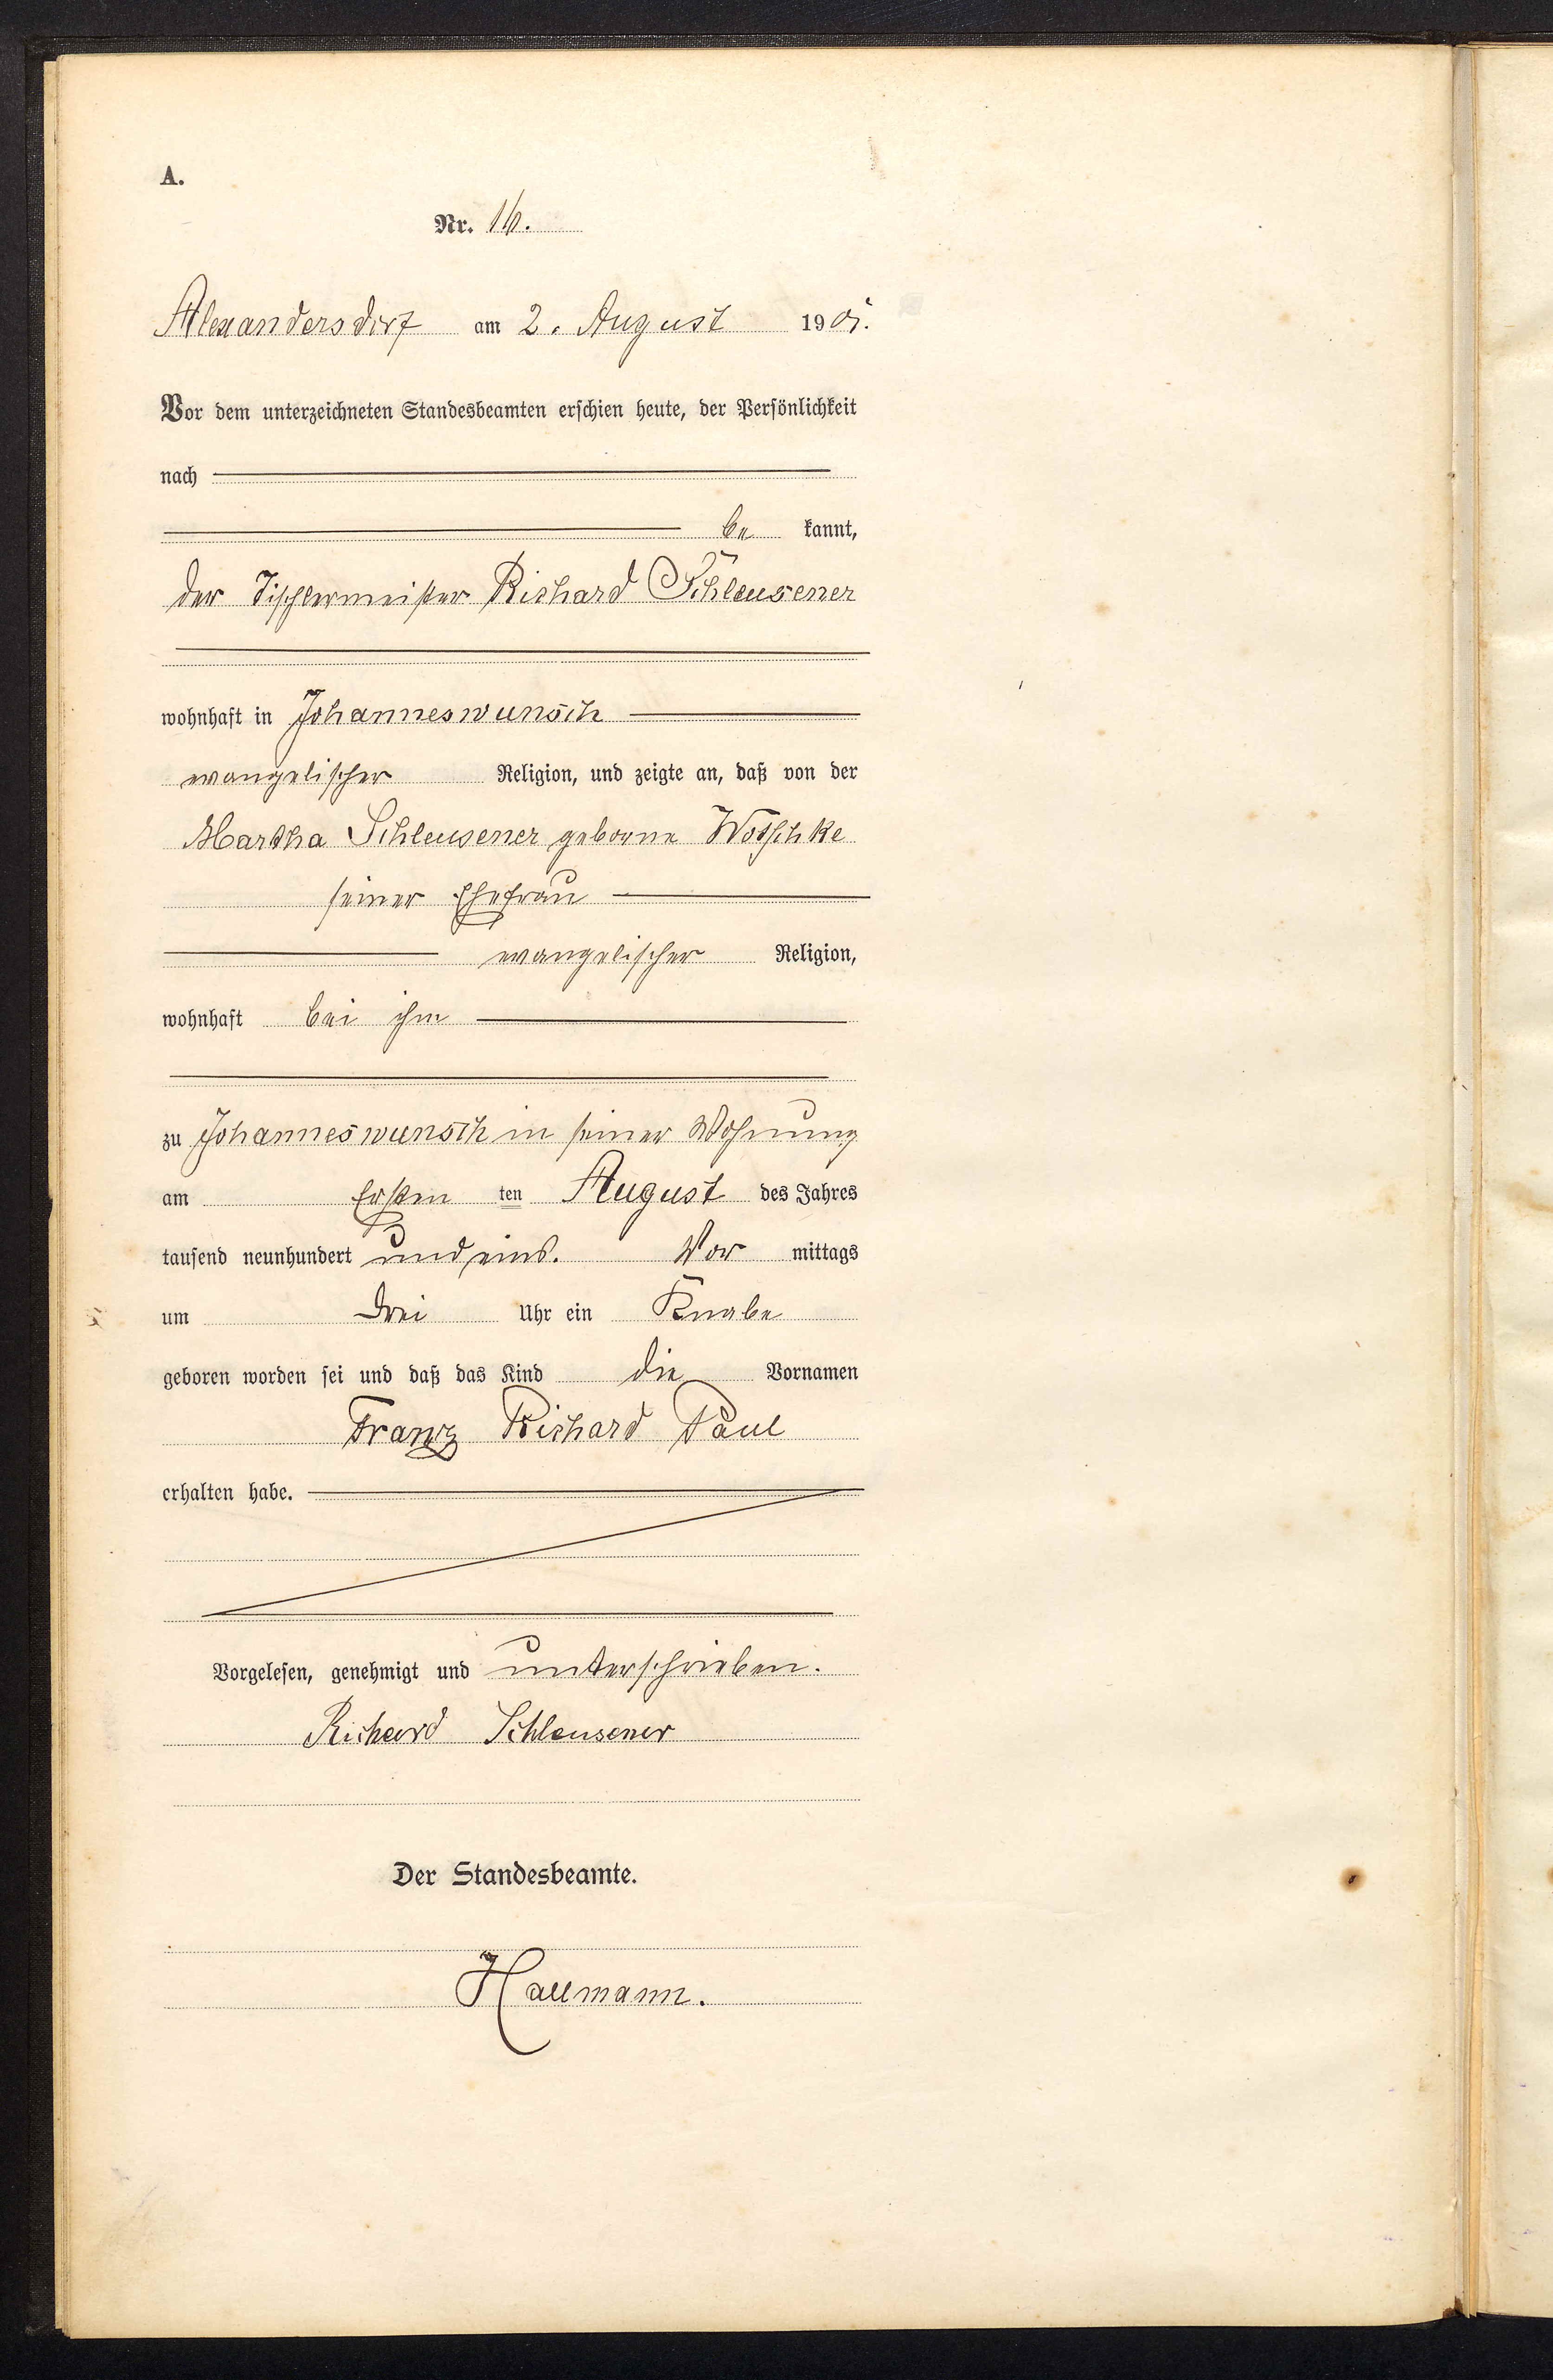 A.
Nr. 16.
Alexandersdorf am 2. August 1901.
Vor dem unterzeichneten Standesbeamten erschien heute, der Persönlichkeit
nach
be kannt,
der Tischlermeister Richard Schleusener
wohnhaft in Johanneswunsch
evangelischer Religion, und zeigte an, daß von der
Martha Schleusener geborne Wotschke
seiner Ehefrau
evangelischer Religion,
wohnhaft bei ihm
zu Johanneswunsch in seiner Wohnung
am Ersten ten August des Jahres
tausend neunhundert und eins. Vor mittags
um drei Uhr ein Knabe
geboren worden sei und daß das Kind die Vornamen
Franz Richard Paul
erhalten habe.
Vorgelesen, genehmigt und unterschrieben.
Richard Schleusener
Der Standesbeamte.